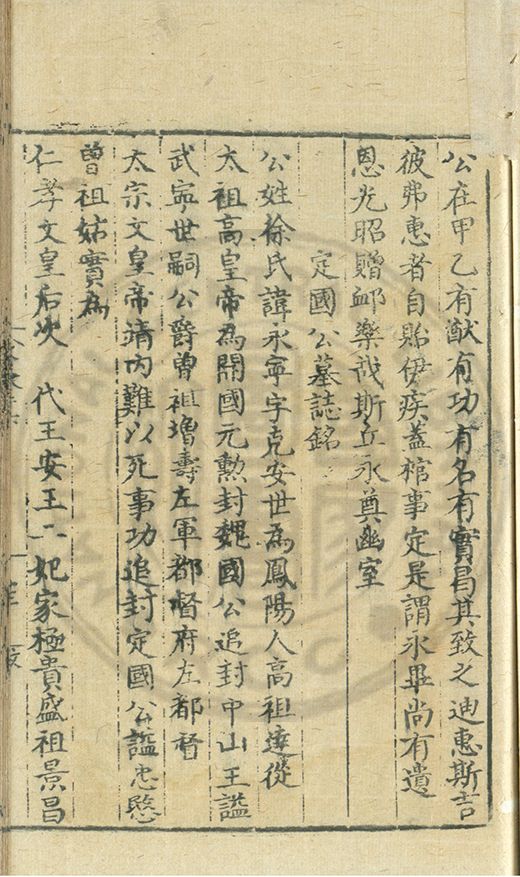 公在甲乙有猷有功有名有實昌其致之迪惠斯吉
彼弗惠者自貽伊疾蓋棺事定是謂永畢尚有遺
恩光昭贈邮樂哉斯丘永奠幽室
定國公墓誌銘
公姓徐氏諱永寧字克安世為鳳陽人高祖達從
太祖高皇帝為開國元勲封魏國公追封中山王謚
武寧世嗣公爵曽祖增壽左軍都督府左都督
太宗文皇帝靖内難以死事功追封定國公謚忠愍
曽祖姑實為
仁孝文皇后次 代王安王二妃家極貴盛祖景昌